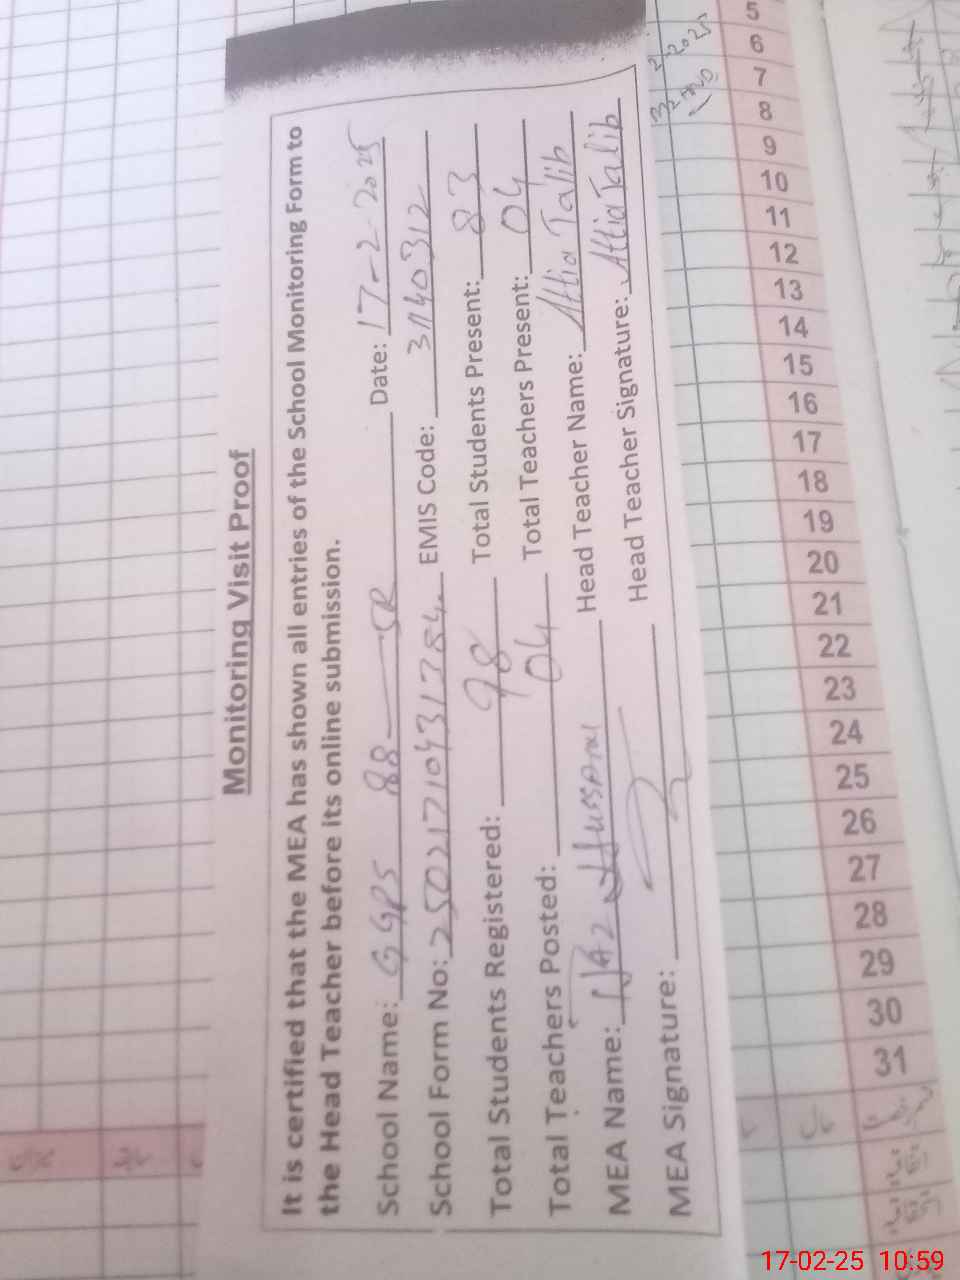 Monitoring Visit Proof
It is certified that the MEA has shown all entries of the School Monitoring Form to
the Head Teacher before its online submission.
School Name: GGPS 88 SR Date: 17-2-2025
School Form No: 25021710431784 EMIS Code: 31140312
Total Students Registered: 98 Total Students Present: 83
Total Teachers Posted: 04 Total Teachers Present: 04
MEA Name: Head Teacher Name: Attia Talib
MEA Signature: Head Teacher Signature: Attia Talib
5
6
7
8
9
10
11
12
13
14
15
16
17
18
19
20
21
22
23
24
25
26
27
28
29
30
31
17-02-25 10:59